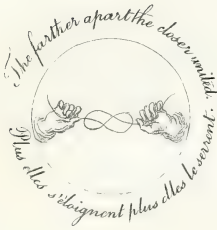 The farther apart the closer united.
Plus elles s'éloignent plus elles se serrent.